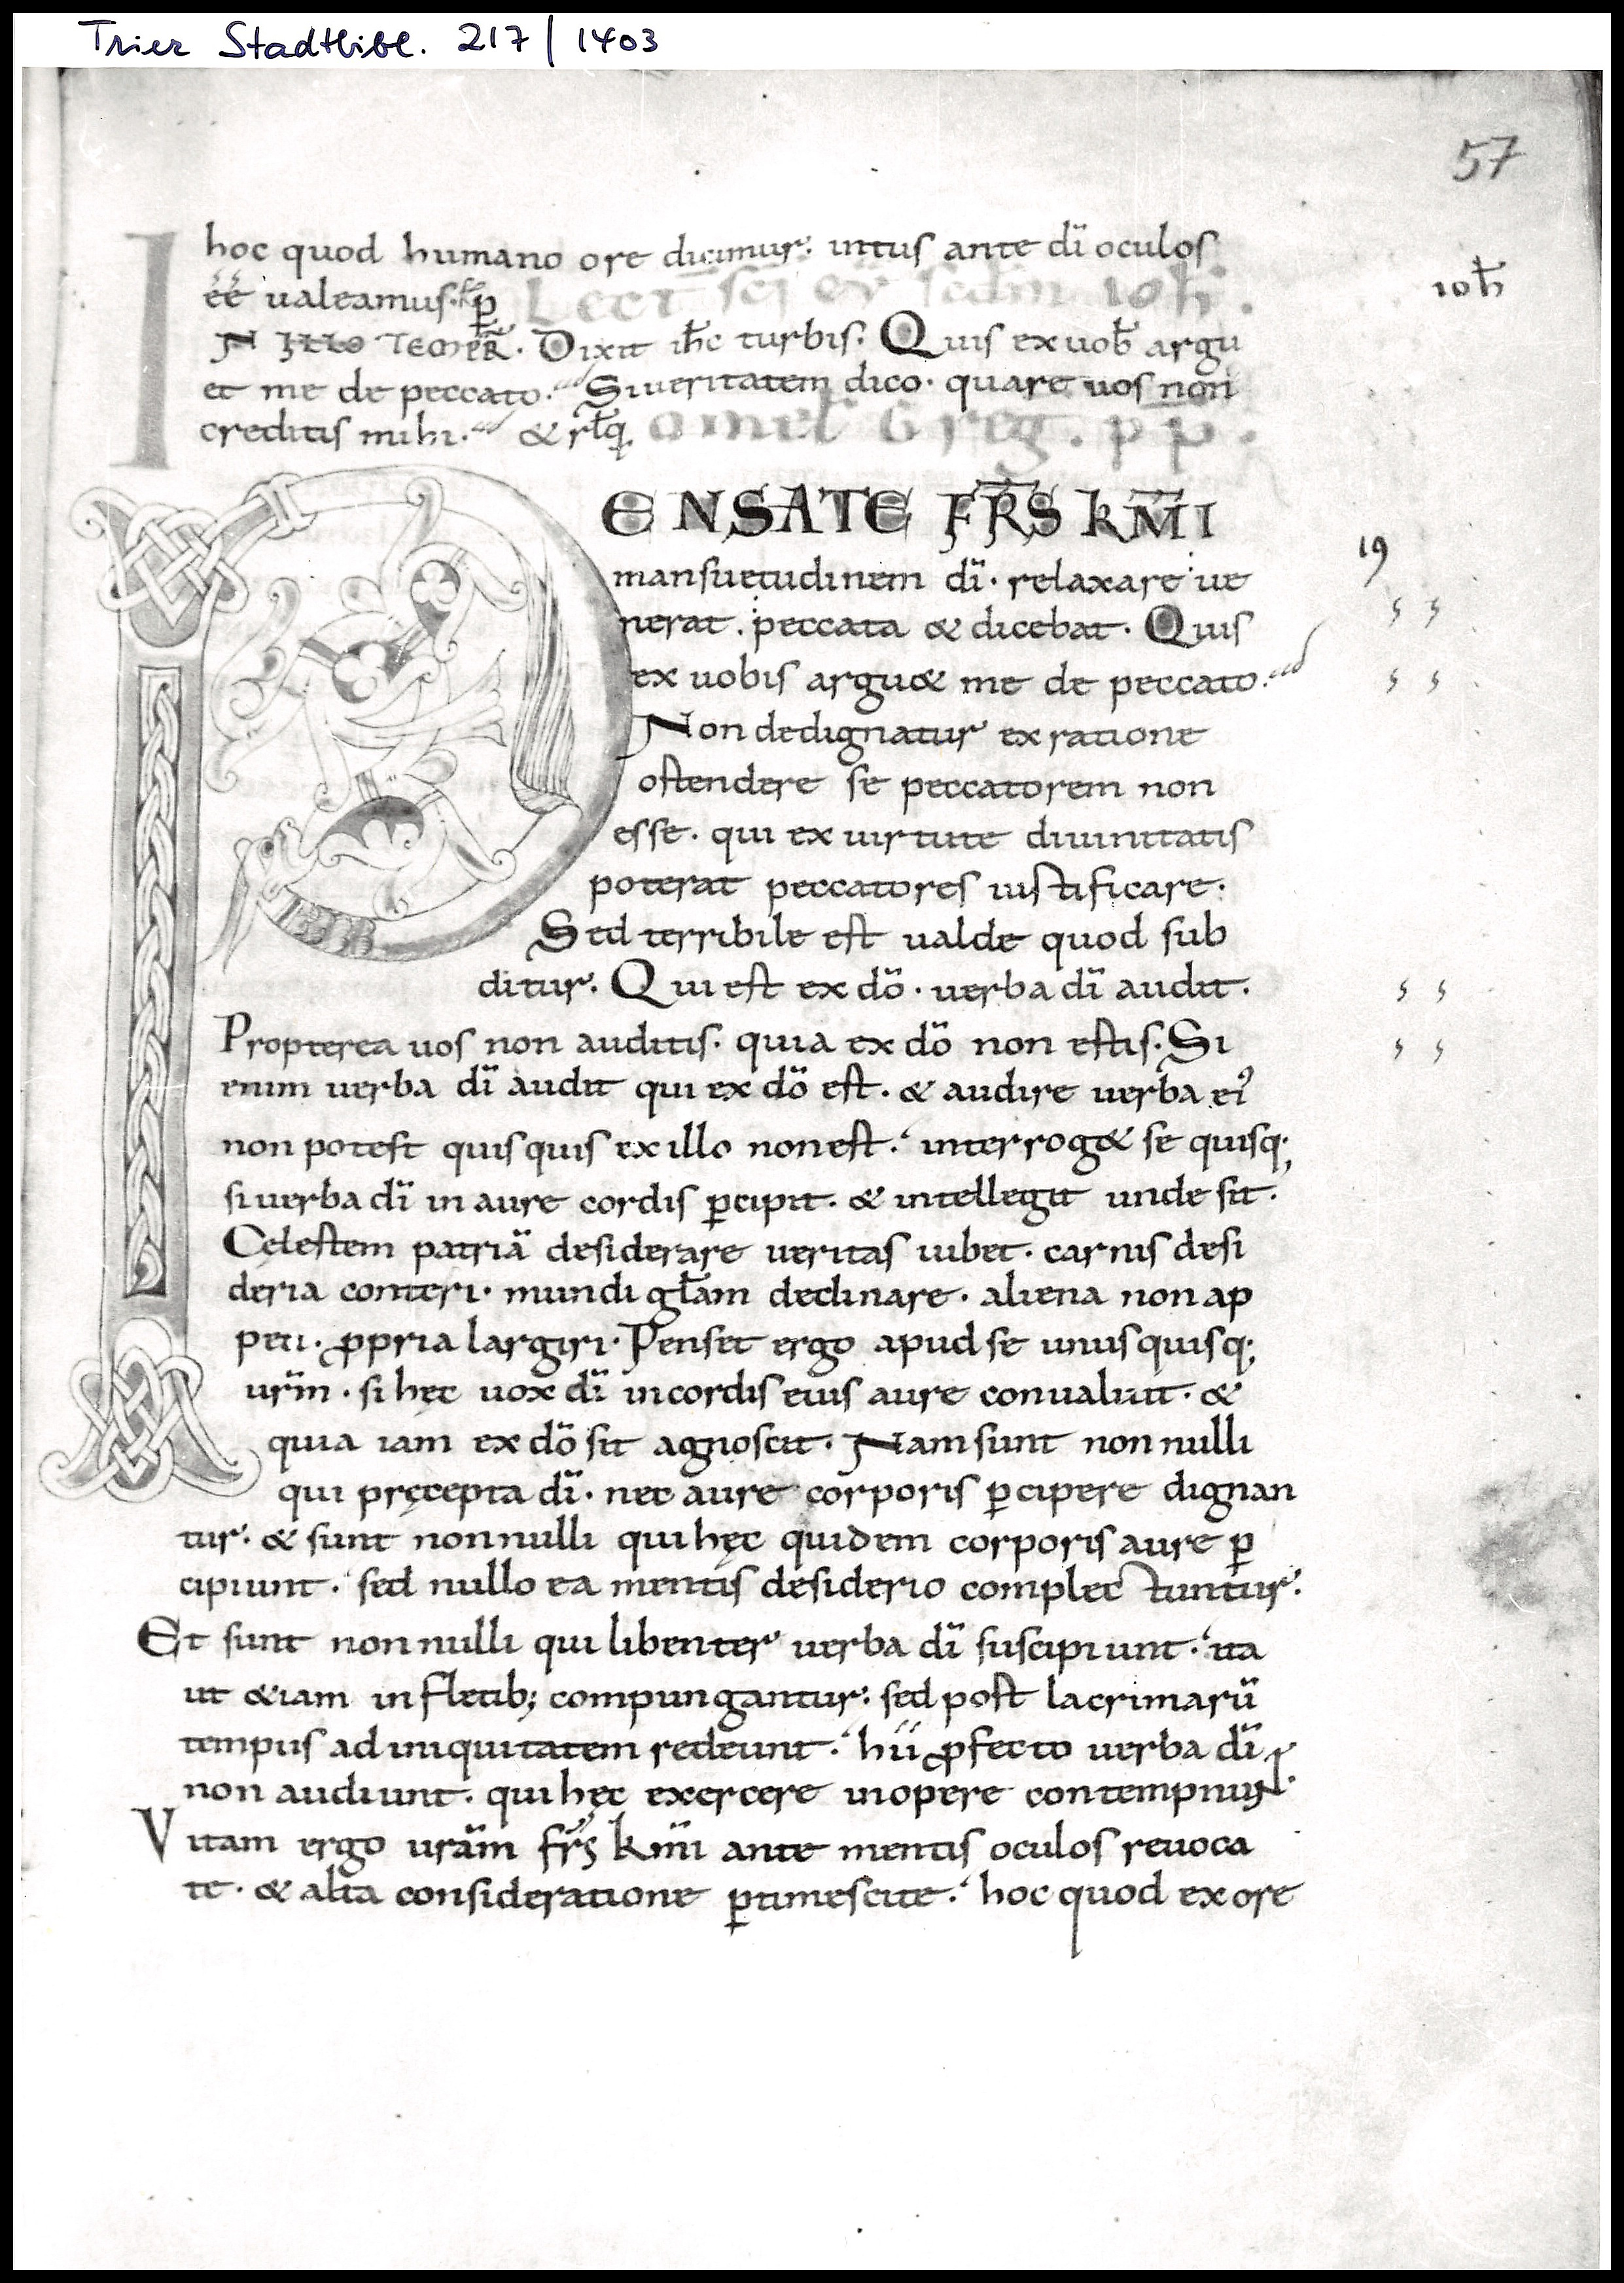 Trier Stadtbibl. 217 / 1403
57
hoc quod humano ore dicimur: intus ante dī oculos
ee ualeamus. p̱ Lect sci eu scdm ioh̄.
ioh̄
IN ILLO TEMPR̄. Dixit ih̄c turbis. Quis ex uob̄ argu
et me de peccato. Si ueritatem dico. quare uos non
creditis mihi. & rl̄q. omel Greg. pp.
PENSATE FR̄S KM̄I
19
mansuetudinem dī. relaxare ue
nerat. peccata & dicebat. Quis
ex uobis argu& me de peccato.
Non dedignatur ex ratione
ostendere se peccatorem non
esse. qui ex uirtute diuinitatis
poterat peccatores iustificare.
Sed terribile est ualde quod sub
ditur. Qui est ex dō. uerba dī audit.
Propterea uos non auditis. quia ex dō non estis. Si
enim uerba dī audit qui ex dō est. & audire uerba ei᾽
non potest quisquis ex illo non est. interrog& se quisq;
si uerba dī in aure cordis p̱cipit. & intellegit unde sit.
Celestem patriā desiderare ueritas iubet. carnis desi
deria conteri. mundi gl̄am declinare. aliena non ap
peti. ꝓpria largiri. Penset ergo apud se unusquisq;
ur̄m. si hęc uox dī in cordis eius aure conualuit. &
quia iam ex dō sit agnoscit. Nam sunt non nulli
qui pręcepta dī. nec aure corporis p̱cipere dignan
tur. & sunt nonnulli qui hęc quidem corporis aure p̱
cipiunt. sed nullo ea mentis desiderio complectuntur.
Et sunt non nulli qui libenter uerba dī suscipiunt. ita
ut &iam in fletib; compungantur: sed post lacrimarū
tempus ad iniquitatem redeunt. hii ꝓfecto uerba dī
non audiunt. qui hęc exercere in opere contempnunt.
Vitam ergo urām fr̄s km̄i ante mentis oculos reuoca
te. & alta consideratione p̱timescite. hoc quod ex ore